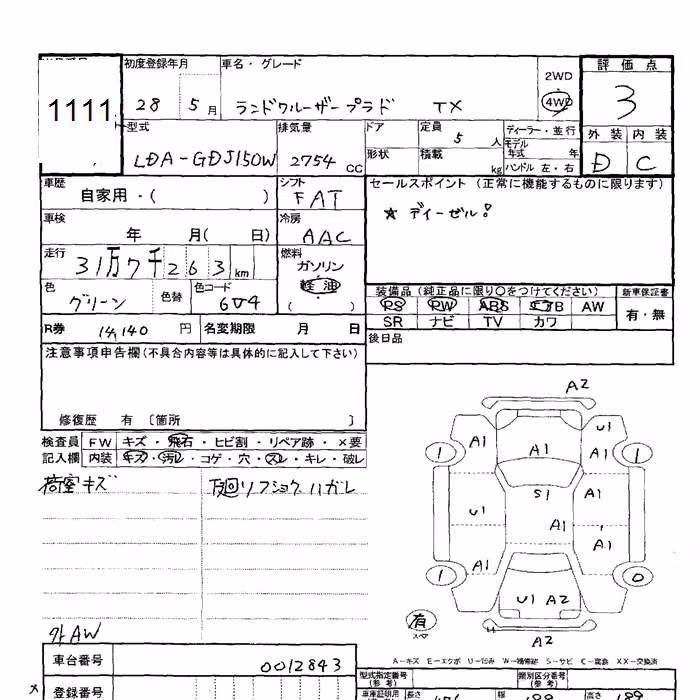 初度登録年月 車名・グレード
2WD
評価点
1111
28 5月 ランドクルーザープラド TX
4WD
3
型式 排気量 ドア 定員 5 人 ディーラー・並行
外装 内装
モデル年式 年
LDA-GDJ150W 2754 CC 形状 積載 kg ハンドル 左・右
D C
車歴 シフト セールスポイント (正常に機能するものに限ります)
自家用・( ) FAT
☆ ディーゼル!
車検 冷房
年 月( 日) AAC
走行 燃料
31万7千263km ガソリン
軽油
( )
色 色替 色コード
グリーン 6V4
装備品 (純正品に限り〇をつけてください) 新車保証書
PS PW ABS エアB AW 有・無
SR ナビ TV カワ
R券 14,140 円 名変期限 月 日
後日品
注意事項申告欄(不具合内容等は具体的に記入して下さい)
修復歴 有 〔箇所 〕
検査員 FW キズ・飛石・ヒビ割・リペア跡・×要
記入欄 内装 キズ・汚レ・コゲ・穴・スレ・キレ・破レ
荷室キズ 下廻リフショクハガレ
A2
U1
A1 A1
1 1
A1
S1 A1
U1
A1
A1 A1
1 0
U1 A2
有
スペア
A2
外AW
A-キズ E-エクボ U-凹み W-補修跡 S-サビ C-腐食 XX-交換済
車台番号 0012843
型式指定番号(参考) 類別区分番号(参考)
登録番号
長さ 幅 高さ 189